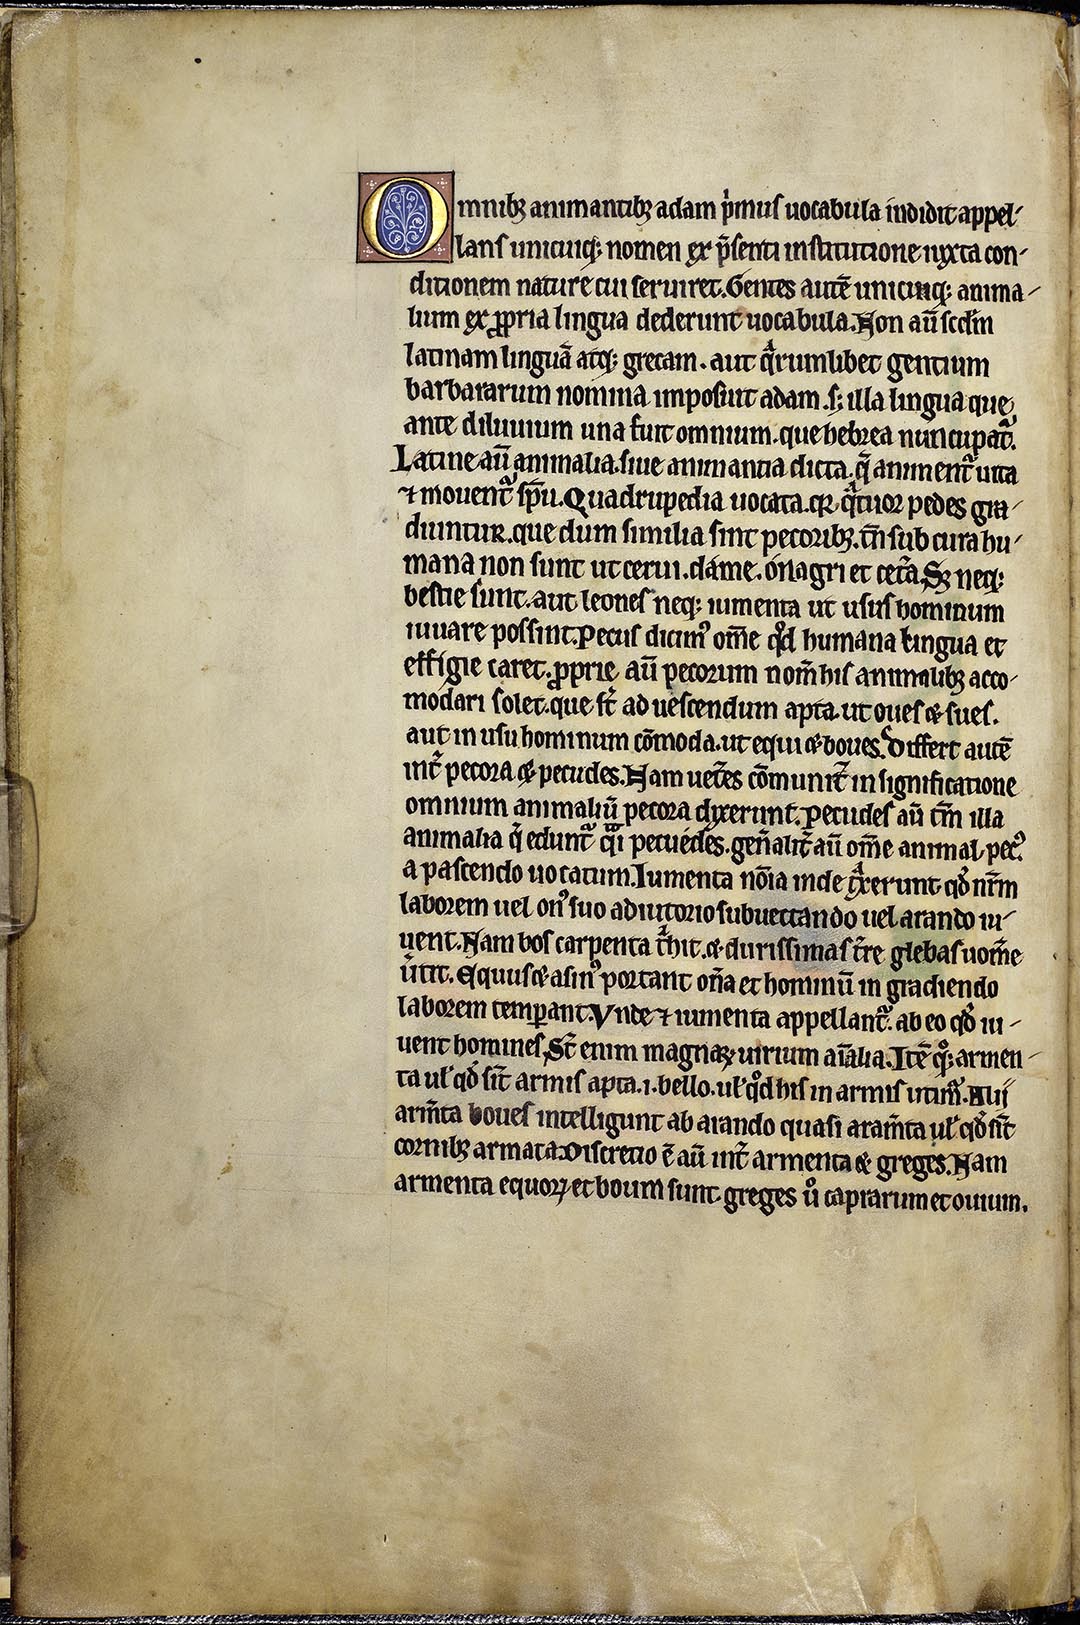 Omnibꝫ animantibꝫ adam p̍mus uocabula indidit appel-
lans unicuiqꝫ nomen ex p̄senti institutione iuxta con-
ditionem nature cui seruiret. Gentes autē unicuiqꝫ anima-
lium ex ꝓpria lingua dederunt uocabula. Non aū scd̄m
latinam linguā atqꝫ grecam. aut qͣrumlibet gentium
barbararum nomina imposuit adam. sꝫ illa lingua que
ante diluuium una fuit omnium. que hebrea nuncupat᷑.
Latine aū animalia. siue animantia dicta. q̄ animent᷑ uita
⁊ mouent᷑ sp̄u. Quadrupedia uocata. qꝛ qͣtuor pedes gra-
diuntur. que dum similia sint pecoribꝫ. tn̄ sub cura hu-
mana non sunt ut cerui. dame. onagri et cetͣa. Sꝫ neqꝫ
bestie sunt. aut leones neqꝫ iumenta ut usus hominum
iuuare possint. Pecus dicimꝰ om̄e qͦd humana lingua et
effigie caret. ꝓprie aū pecorum nom̄ his animalibꝫ acco-
modari solet. que st̄ ad uescendum apta. ut oues & sues.
aut in usu hominum cōmoda. ut equi & boues. Differt autē
int̄ pecora & pecudes. Nam uet̄es cōmunit̄ in significatione
omnium animaliū pecora dixerunt. Pecudes aū tm̄ illa
animalia q̄ edunt᷑ qͣi pecuedes. gen̄alit̄ aū om̄e animal pecꝰ
a pascendo uocatum. Iumenta nōia inde tͣxerunt qd̄ nr̄m
laborem uel onꝰ suo adiutorio subuectando uel arando iu-
uent. Nam bos carpenta tͣhit. & durissimas t̄re glebas uom̄e
ūtit. Equus & asinꝰ portant on̄a et hominū in gradiendo
laborem temꝑant. Vnde ⁊ iumenta appellant᷑. ab eo qd̄ iu-
uent homines. St̄ enim magnaꝝ uirium aīalia. Itē qͦꝫ armen-
ta ul̓ qd̄ sīt armis apta. i. bello. ul̓ qͦd his in armis utimᷣ. Alii
arm̄ta boues intelligunt ab arando quasi aram̄ta ul̓ qd̄ sīt
cornibꝫ armata. Discretio ē aū int̄ armenta & greges. Nam
armenta equoꝝ et boum sunt. greges uͦ caprarum et ouium.